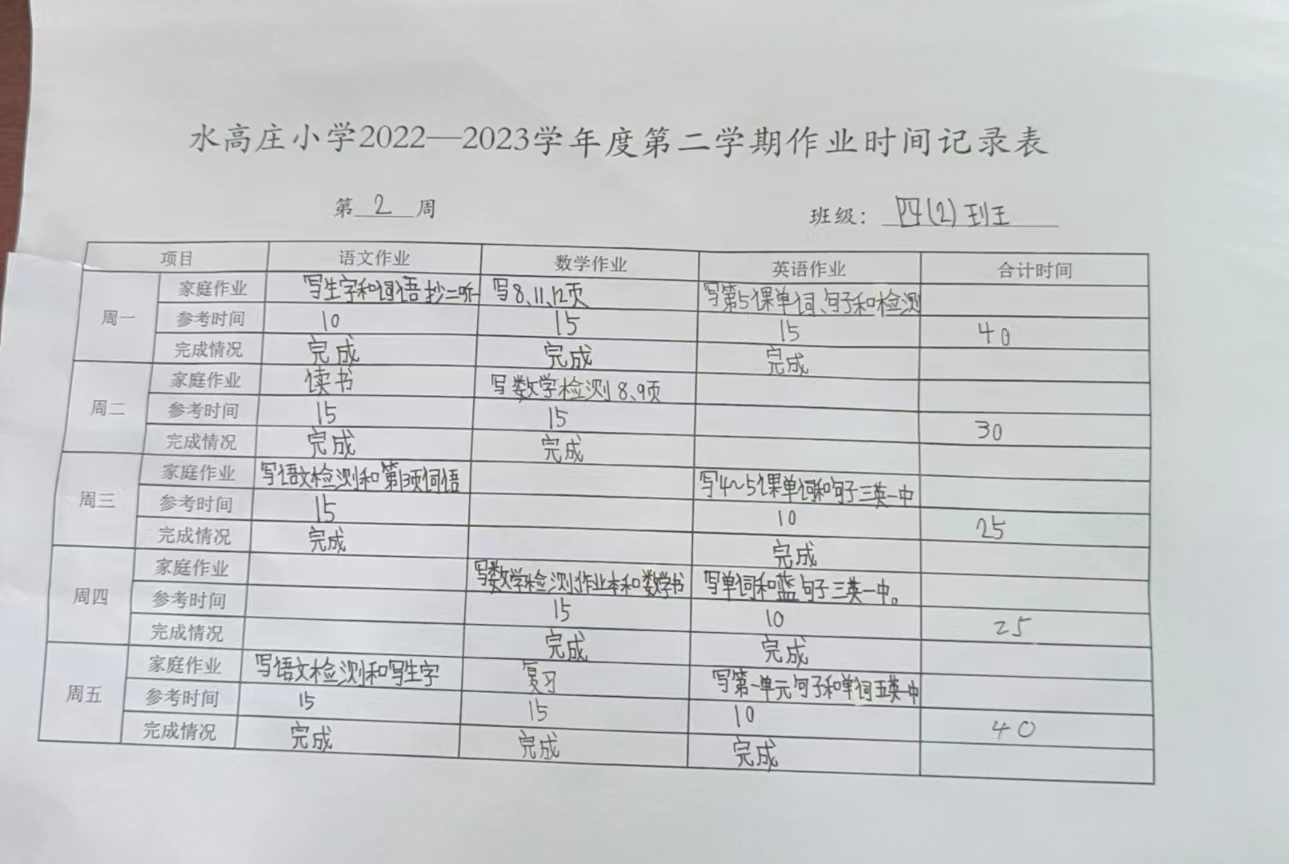 水高庄小学2022—2023学年度第二学期作业时间记录表
第 2 周 班级： 四(2)班
项目 语文作业 数学作业 英语作业 合计时间
周一
家庭作业 写生字和词语 抄二听一 写8、11、12页 写第5课单词、句子和检测
参考时间 10 15 15 40
完成情况 完成 完成 完成
周二
家庭作业 读书 写数学检测8、9页
参考时间 15 15 30
完成情况 完成 完成
周三
家庭作业 写语文检测和第13页词语 写4~5课单词和句子三英一中
参考时间 15 10 25
完成情况 完成 完成
周四
家庭作业 写数学检测、作业本和数学书 写单词和蓝句子三英一中。
参考时间 15 10 25
完成情况 完成 完成
周五
家庭作业 写语文检测和写生字 复习 写第一单元句子和单词五英一中
参考时间 15 15 10 40
完成情况 完成 完成 完成